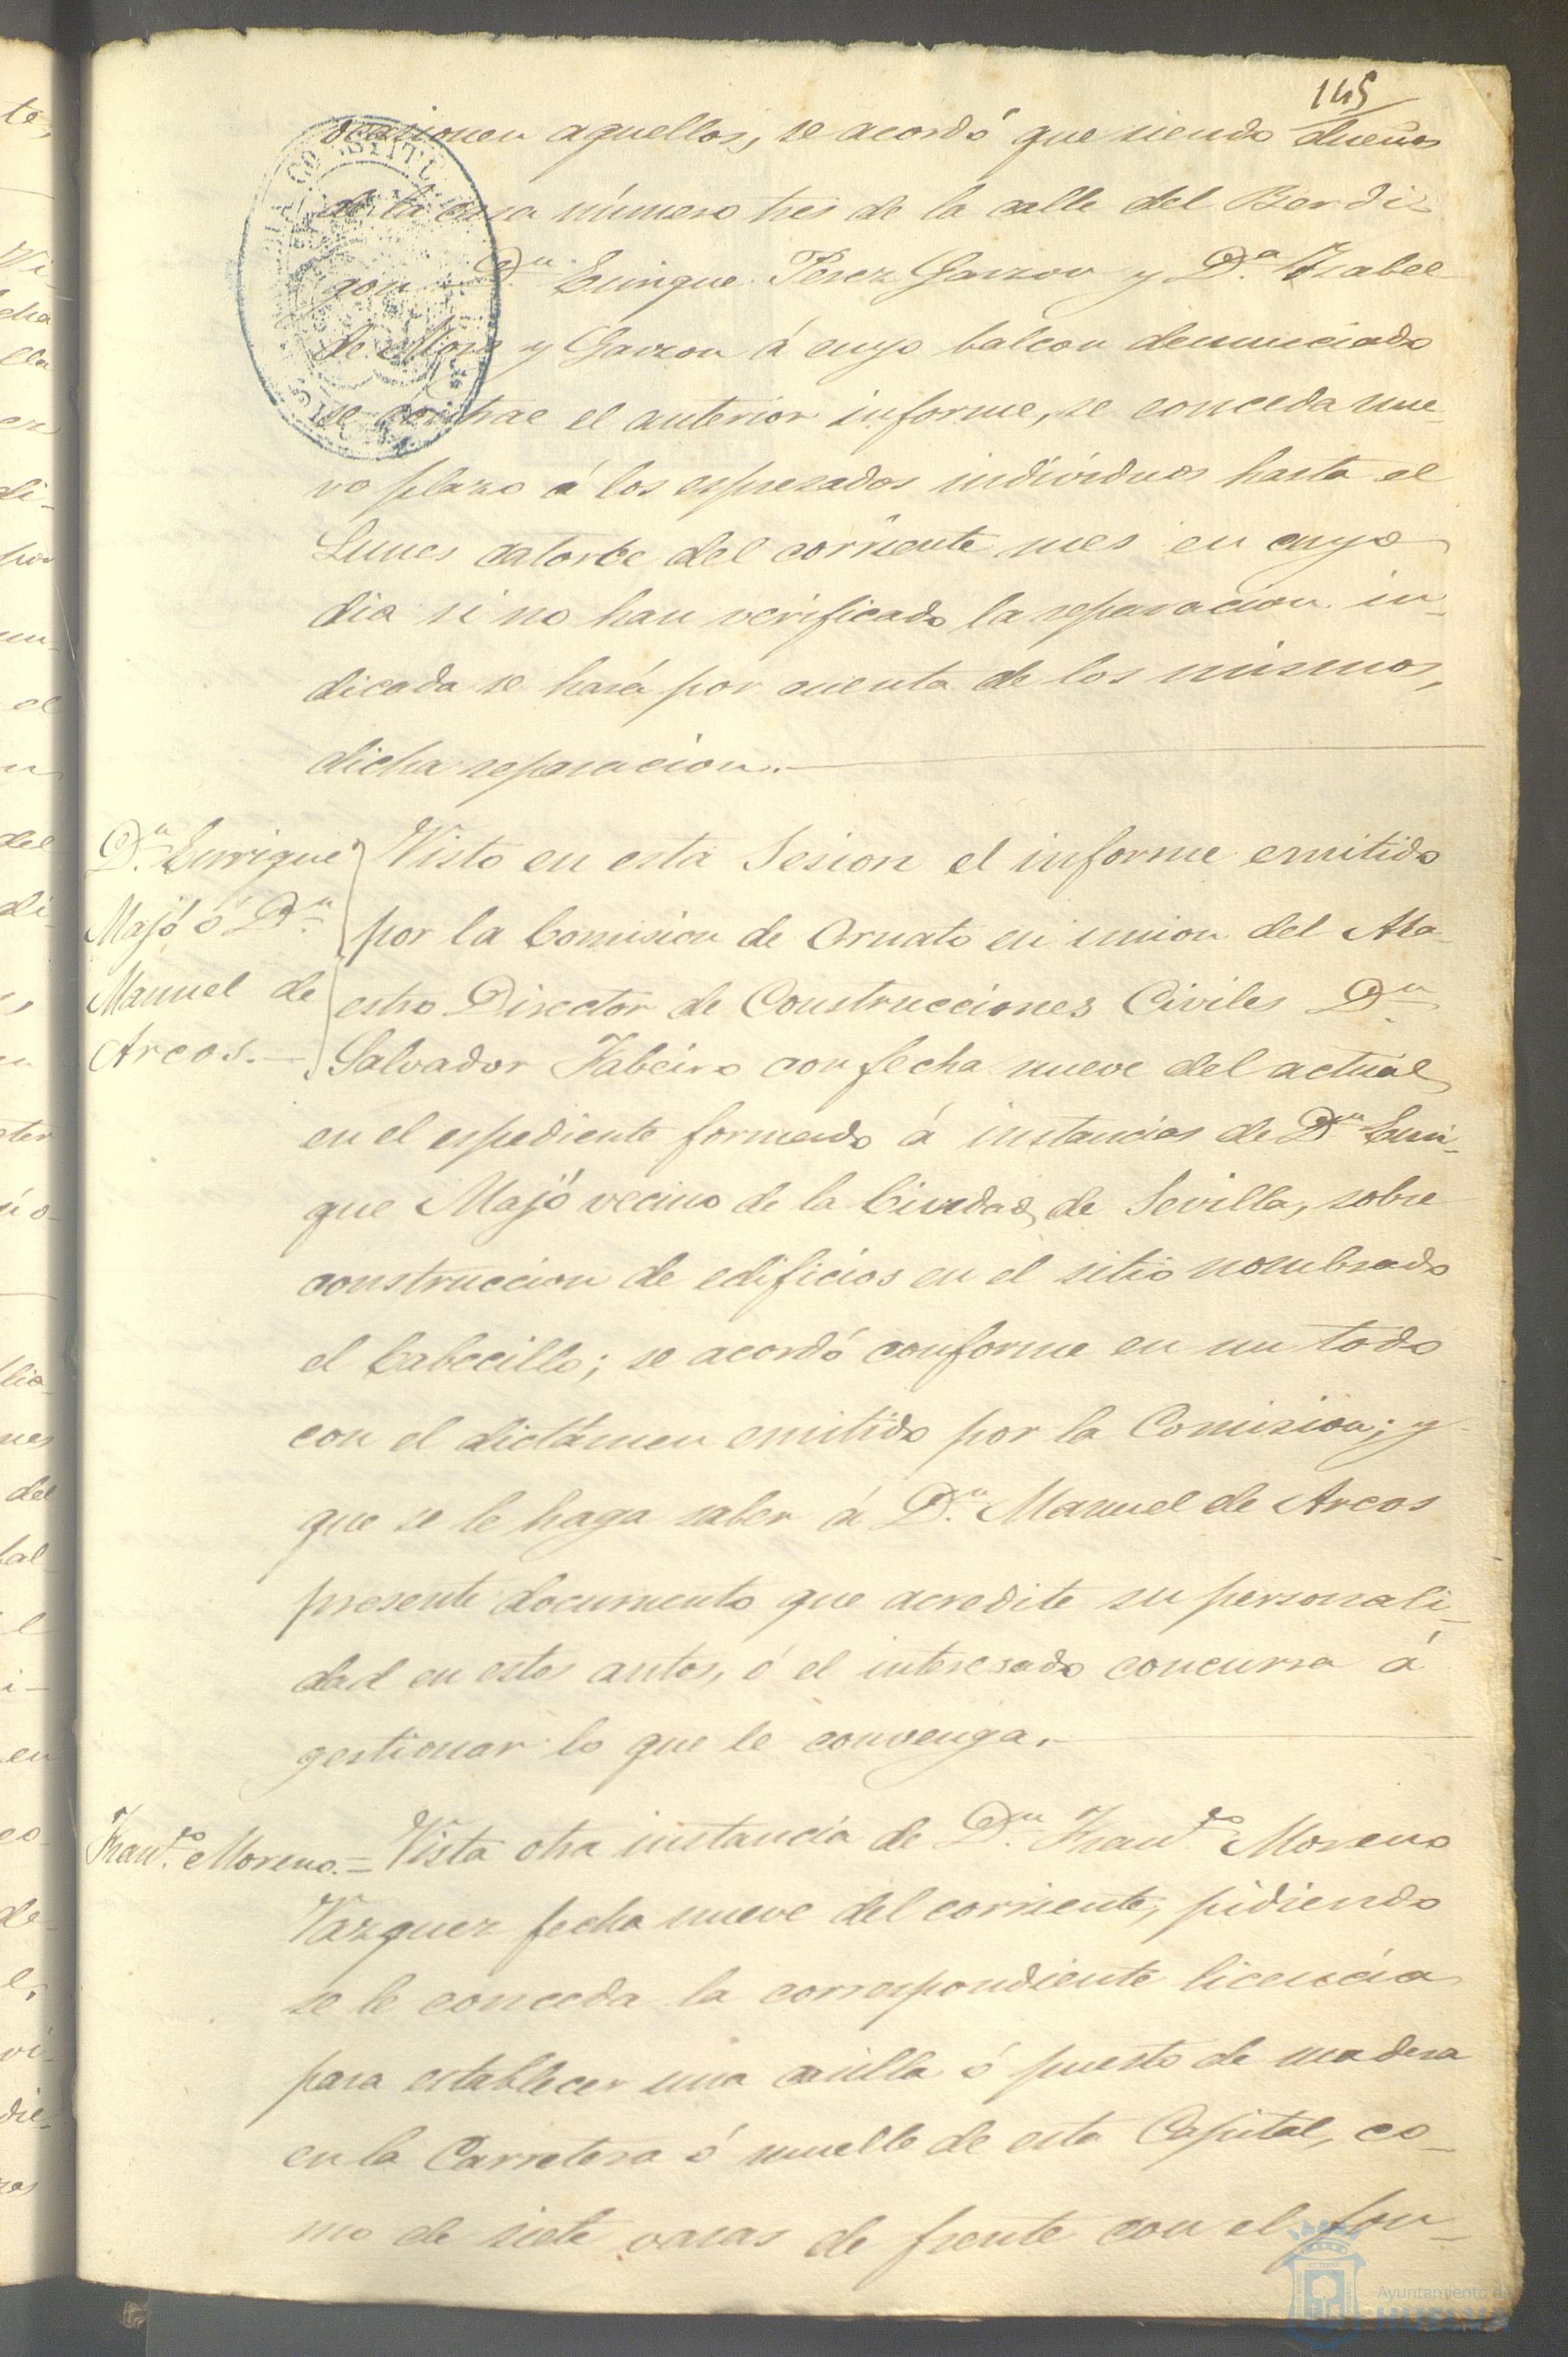 145
ocasionen aquellos, se acordó que siendo dueños
de la casa número tres de la calle del Berdi-
gon Dn. Enrique Perez Garzon y Da. Isabel
de Mora y Garzon á cuyo balcon denunciado
se contrae el anterior informe, se conceda nue-
vo plazo á los espresados individuos hasta el
Lunes catorce del corriente mes en cuyo
dia si no han verificado la reparacion in-
dicada se hará por cuenta de los mismos,
dicha reparacion.
Dn. Enrrique
Majó ó Dn.
Manuel de
Arcos.
Visto en esta Sesion el informe emitido
por la Comision de Ornato en union del Ma-
estro Director de Construcciones Civiles Dn.
Salvador Fabeiro con fecha nueve del actual
en el espediente formado á instancias de Dn. Enri-
que Majó vecino de la Ciudad de Sevilla, sobre
construccion de edificios en el sitio nombrado
el Cabecillo; se acordó conforme en un todo
con el dictámen emitido por la Comision; y
que se le haga saber á Dn. Manuel de Arcos
presente documento que acredite su personali-
dad en estos autos, ó el interesado concurra á
gestionar lo que le convenga.
Francco. Moreno. = Vista otra instancia de Dn. Francco. Moreno
Vazquez fecha nueve del corriente, pidiendo
se le conceda la correspondiente licencia
para establecer una casilla ó puesto de madera
en la Carretera ó muelle de esta Capital, co-
mo de siete varas de frente con el fon-
Ayuntamiento de
HUELVA